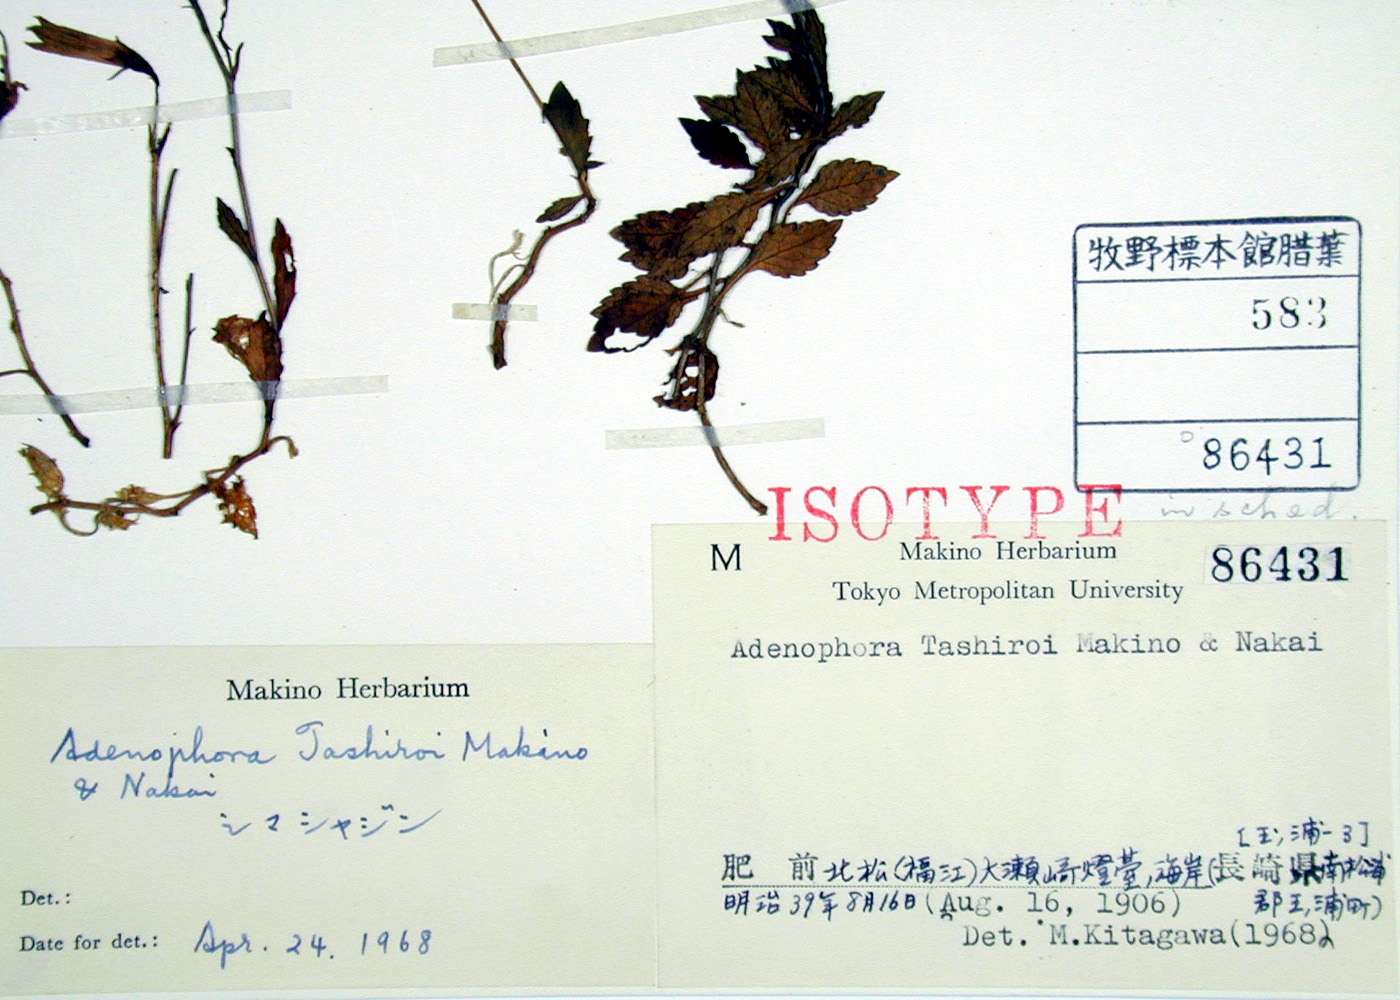 牧野標本館腊葉
583
86431
in sched.
ISOTYPE
M
Makino Herbarium
86431
Tokyo Metropolitan University
Adenophora Tashiroi Makino & Nakai
[玉ノ浦-3]
肥前北松(福江)大瀬崎燈臺,海岸(長崎県南松浦
明治39年8月16日(Aug. 16, 1906) 郡玉ノ浦町)
Det. M.Kitagawa(1968)
Makino Herbarium
Adenophora Tashiroi Makino
& Nakai
シマシャジン
Det.:
Date for det.: Apr. 24. 1968